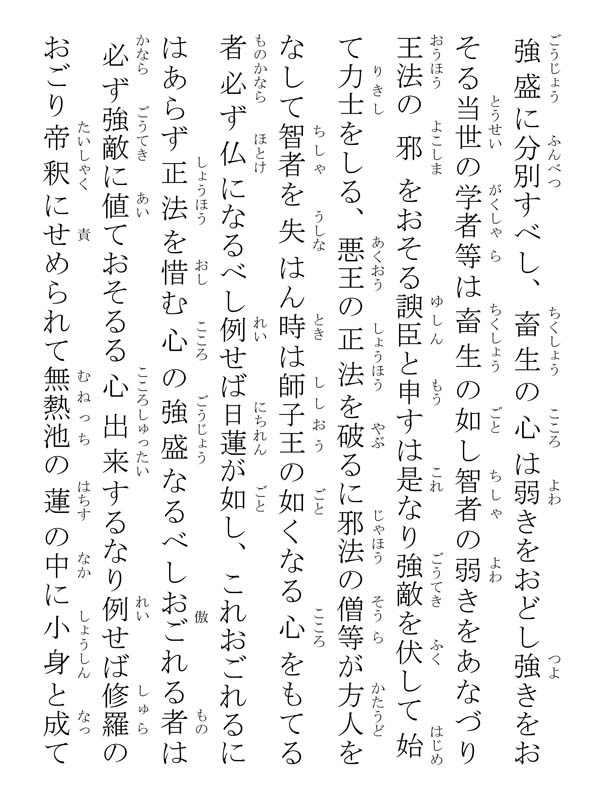 強盛に分別すべし、畜生の心は弱きをおどし強きをお
そる当世の学者等は畜生の如し智者の弱きをあなづり
王法の邪をおそる諛臣と申すは是なり強敵を伏して始
て力士をしる、悪王の正法を破るに邪法の僧等が方人を
なして智者を失はん時は師子王の如くなる心をもてる
者必ず仏になるべし例せば日蓮が如し、これおごれるに
はあらず正法を惜む心の強盛なるべしおごれる者は
必ず強敵に値ておそるる心出来するなり例せば修羅の
おごり帝釈にせめられて無熱池の蓮の中に小身と成て